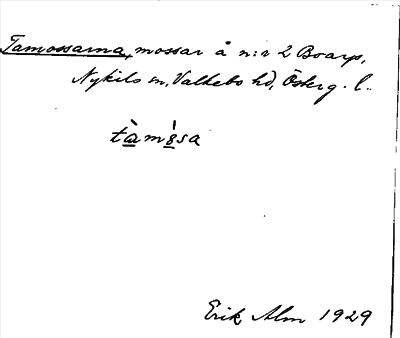 Tamossarna, mossar å n:r 2 Boarp,
Nykils sn, Valkebo hd, Österg. l.
tàmósa
Erik Alm 1929